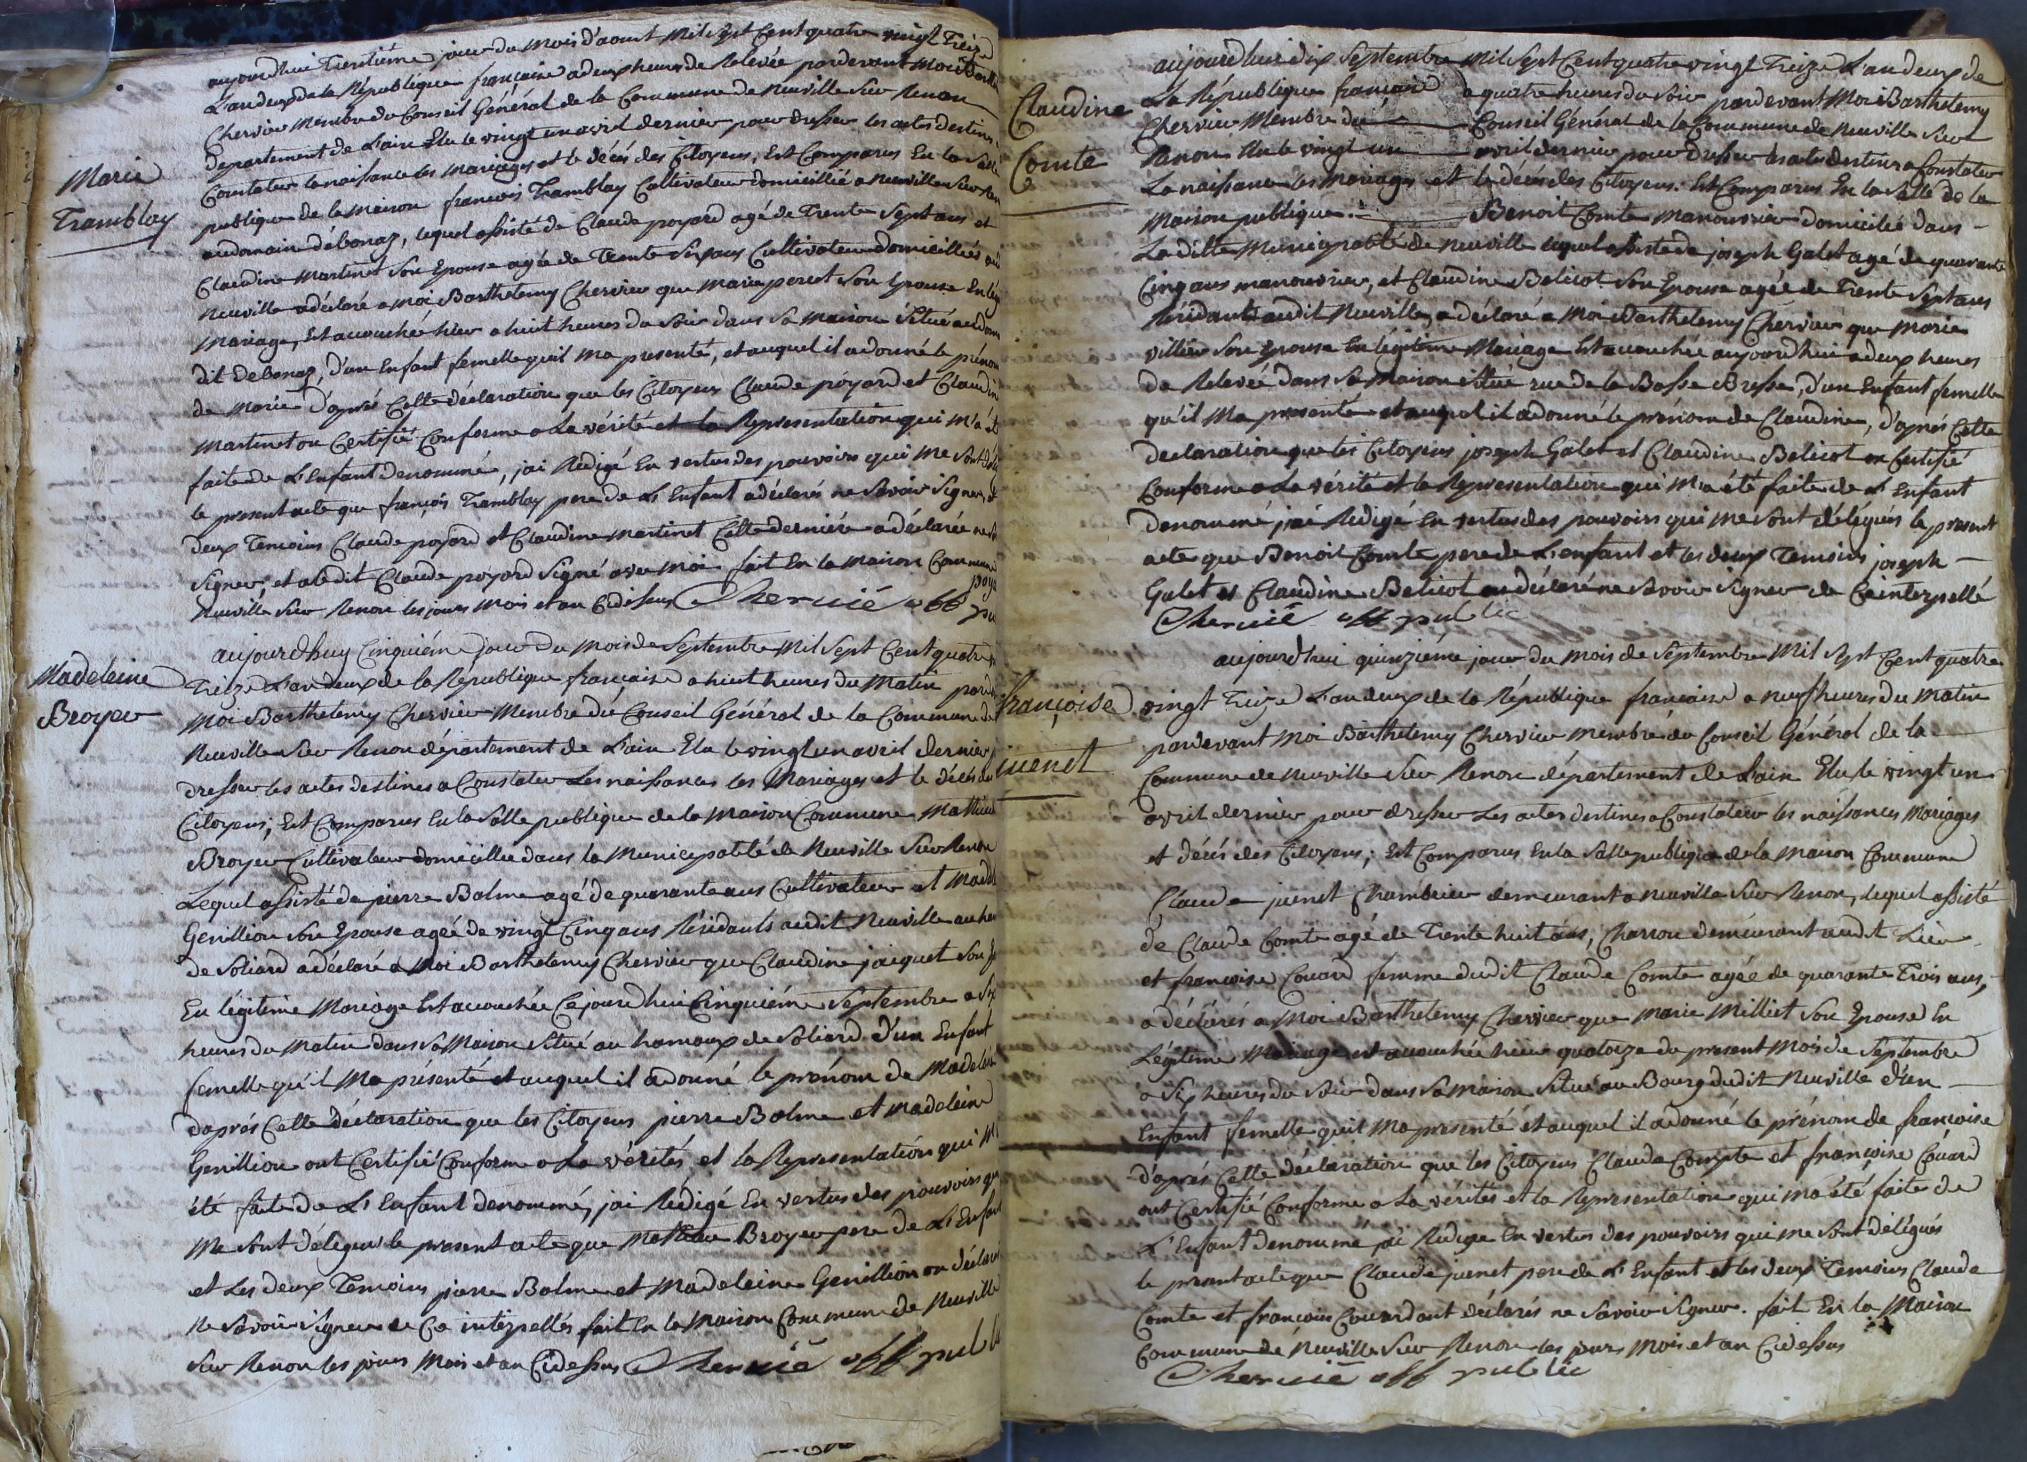 Marie
Tramblay
aujourdhui Trentiéme jour du Mois d'aoust Mil Sept Cent quatre vingt Treize
L'an deux de la République française a deux heures de Relevée pardevant Moi Barth
Chervier Membre du Conseil Général de la Commune de Neuville Sur Renon
département de L'ain Elu le vingt un avril dernier pour dresser les actes destinés
Constater la naissance les Mariages et le décés des Citoyens, Est Comparus En la Salle
publique de la Maison françois Tramblay Cultivateur domicillié a Neuville Sur Ren
audomaine débonaz, lequel assisté de Claude poyard agé de Trente Sept ans et
Claudine Martinet Son Epouse agée de Trente Six ans Cultivateur domicilliés au
Neuville adéclaré a Moi Barthelemy Chervier que Marie perret Son Epouse En lég
Mariage, Est accouchée hier a huit heures du Soir dans Sa Maison Situé audom
dit debonaz, d'un Enfant femelle quil Ma presenté, et auquel il adonné le prénom
de Marie d'aprés Cette déclaration que les Citoyens Claude poyard et Claudin
Martinet on Certifié Conforme a La vérité et la Représentation qui M'a ét
faite de L'Enfant denommé, jai Redigé En vertus des pouvoirs qui Me Sont dél
le present acte que françois Tramblay pere de L'Enfant adéclaré ne Savoir Signer, et
deux Temoins Claude poyard et Claudine Martinet Cette derniére adéclarée ne S
Signer, et aledit Claude poyard Signé avec Moi fait En la Maison Commune
Neuville Sur Renon les jours Mois et an Cidessus Chervié off pu
poya
Madeleine
Broyer
aujourdhuy Cinquiéme jour du Mois de Septembre Mil Sept Cent quatre v
Treize L'an deux de la République française a huit heures du Matin parde
Moi Barthelemy Chervier Membre du Conseil Général de la Commune de
Neuville Sur Renon département de L'ain Elu le vingt un avril dernier
dresser les actes destinés a Constater Les naissances les Mariages et le décés des
Citoyens; Est Comparus En la Salle publique de la Maison Commune Mathieu
Broyer Cultivateur domicillié dans la Municipalité de Neuville Sur Renon
Lequel assisté de pierre Balme agé de quarante ans Cultivateur et Madel
Genillion Son Epouse agée de vingt Cinq ans Résidants audit Neuville au ha
de Soliard adéclaré a Moi Barthelemy Chervier que Claudine jaiquet Son Ep
En légitime Mariage Est accouchée Cejourdhui Cinquiéme Septembre a Six
heures du Matin dans Sa Maison Situé au hamaux de Soliard d'un Enfant
femelle qu'il Ma présenté et auquel il adonné le prénom de Madelei
daprés Cette déclaration que les Citoyens pierre Balme et Madeleine
Genillion ont Certifié Conforme a La vérités et la Représentation qui M
été faite de L'Enfant denommé, jai Rédigé En vertus des pouvoirs qu
Me Sont délégués le present acte que Mathieu Broyer pere de L'Enfant
et Les deux Temoins pierre Balme et Madeleine Genillion on déclaré
Ne Savoir Signer de Ce intérpellés fait En la Maison Commune de Neuville
Sur Renon les jours Mois et an Cidessus Chervié off publi
Claudine
Comte
aujourdhui dix Septembre Mil Sept Cent quatre vingt Treize L'an deux de
La République française a quatre heures du Soir pardevant Moi Barthelemy
Chervier Membre du Conseil Général de la Commune de Neuville Sur
Renon Elu le vingt un avril dernier pour dresser les actes destinés a Constater
La naissance les Mariages et le décés des Citoyens: Est Comparus En la Salle de la
Maison publique. Benoit Comte Manouvrier domicilié dans
Laditte Municipalité de Neuville lequel assisté de joseph Galet agé de quarante
Cinq ans manouvrier, et Claudine Belicot Son Epouse agée de Trente Sept ans
Résidants audit Neuville, adéclaré a Moi Barthelemy Chervier que Marie
villier Son Epouse En légitime Mariage Est accouchée aujourdhui adeux heures
de Relevée dans Sa Maison Situé rue de la Basse Bresse, d'un Enfant femelle
qu'il Ma presenté et auquel il adonné le prénom de Claudine, d'aprés Cette
déclaration que les Citoyens joseph Galet et Claudine Belicot on Certifié
Conforme a La vérité et la Représentation qui M'a été faite de L'Enfant
denommé jai Redigé En vertus des pouvoirs qui Me Sont délégués le present
acte que Benoit Comte pere de L'enfant et les deux Temoins joseph
Galet et Claudine Belicot on déclaré ne Savoir Signer de Ce interpellé
Chervié off public
françoise
juenet
aujourdhui quinziéme jour du Mois de Septembre Mil Sept Cent quatre
vingt Treize L'an deux de la République française a neuf heures du Matin
pardevant Moi Barthelemy Chervier Membre du Conseil Général de la
Commune de Neuville Sur Renon département de L'ain Elu le vingt un
avril dernier pour dresser Les actes destinés a Constater les naissances Mariages
et décés des Citoyens; Est Comparus En la Salle publique de la Maison Commune
Claude juenet Chambrier demeurant a Neuville Sur Renon, lequel assisté
de Claude Comte agé de Trente huit ans, Charron demeurant audit Lieu
et françoise Couard femme dudit Claude Comte agée de quarante Trois ans,
a déclarés a Moi Barthelemy Chervier que Marie Milliet Son Epouse En
Légitime Mariage est accouchée hier quatorze du present Mois de Septembre
a Six heures du Soir dans Sa Maison Situé au Bourg dudit Neuville d'un
Enfant femelle quil Ma presenté et auquel il adonné le prénom de françoise
d'aprés Cette déclaration que les Citoyens Claude Compte et françoise Couard
ont Certifié Conforme a La vérités et la Représentation qui Ma été faite de
L'Enfant denommé jai Redigé En vertus des pouvoirs qui me Sont délégués
le present acte que Claude juenet pere de L'Enfant et les deux Temoins Claude
Comte et françoise Couard ont déclarés ne Savoir Signer. fait En la Maison
Commune de Neuville Sur Renon les jours Mois et an Cidessus
Chervié off public